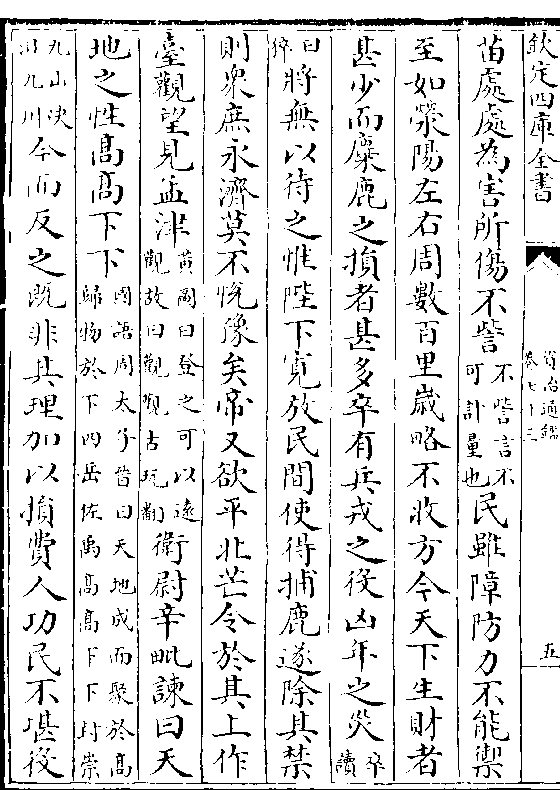 欽定四庫全書
資治通鑑
卷七十三
五
苗處處為害所傷不訾不訾言不可計量也民雖障防力不能禦
至如滎陽左右周數百里歲略不收方今天下生財者
甚少而麋鹿之損者甚多卒有兵戎之役凶年之災卒讀
曰猝將無以待之惟陛下寛放民間使得捕鹿遂除其禁
則衆庶永濟莫不恱豫矣帝又欲平北芒令於其上作
臺觀望見孟津黄圖曰登之可以遠觀故曰觀觀古玩翻衛尉辛毗諫曰天
地之性髙髙下下國語周太子晉曰天地成而聚於髙歸物於下四岳佐禹髙髙下下封崇
九山決汨九川今而反之既非其理加以損費人功民不堪役